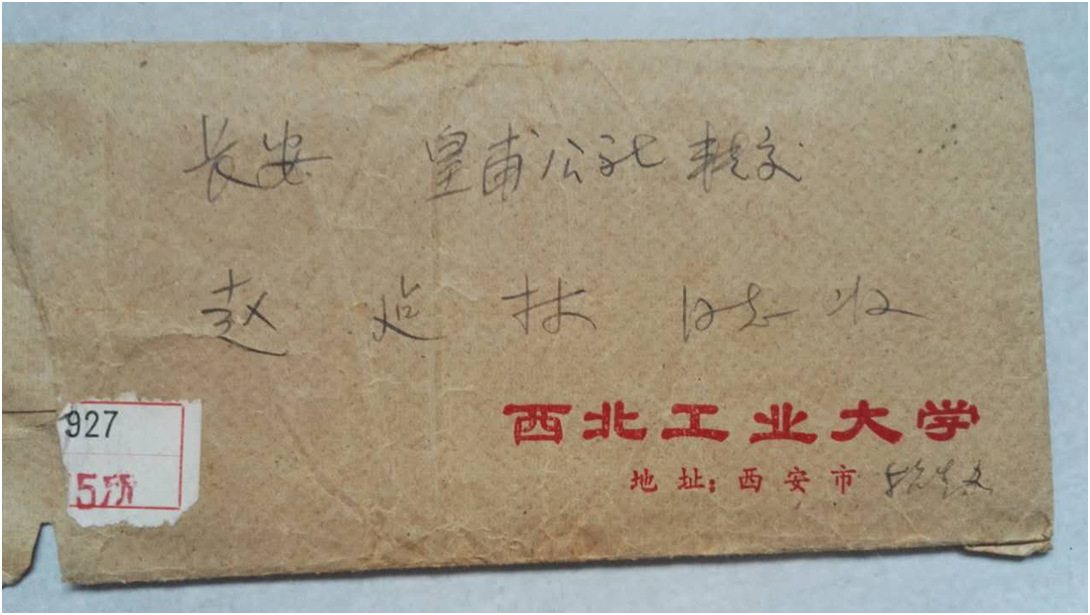 长安 皇甫公社 转交
赵 延 林 同志 收
927
5所
西北工业大学
地 址: 西 安 市